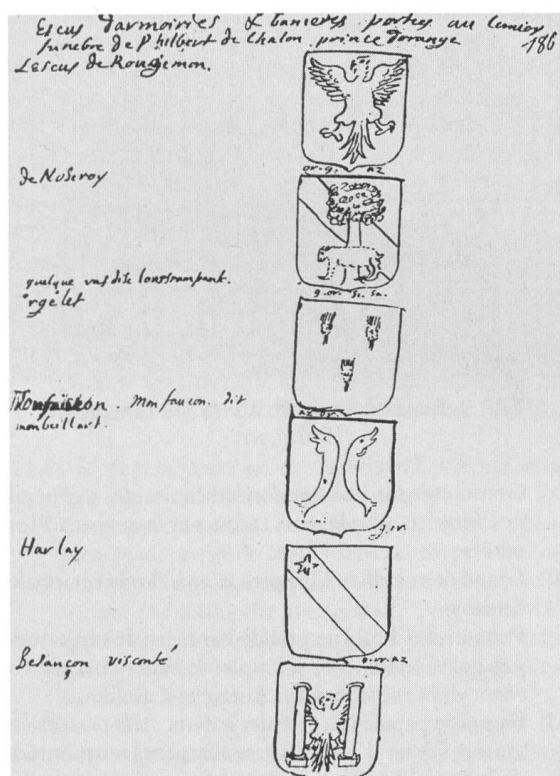 Escus d'armoiries & banieres portes au
funebre de Philbert de Chalon prince dorange
186
Lescus de Rougemon.
or. g. az
de Noseroy
quelque uns dise lours rampant.
g. or. si. sa.
orgelet
az or.
Monfaucon. dit
monbeillart.
g. or.
Harlay
g. or. az
Besançon visconté